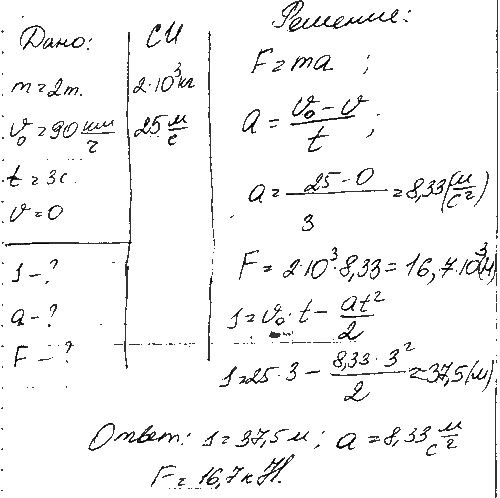 Дано:
m = 2т.
v₀ = 90 км/ч
t = 3с.
v = 0
s - ?
a - ?
F - ?
СИ
2·10³кг
25 м/с
Решение:
F = ma ;
a = (v₀ - v)/t ;
a = (25 - 0)/3 = 8,33 (м/с²)
F = 2·10³·8,33 = 16,7·10³(Н)
s = v₀·t - at²/2
s = 25·3 - (8,33·3²)/2 = 37,5 (м)
Ответ: s = 37,5 м ; a = 8,33 м/с²
F = 16,7 кН.